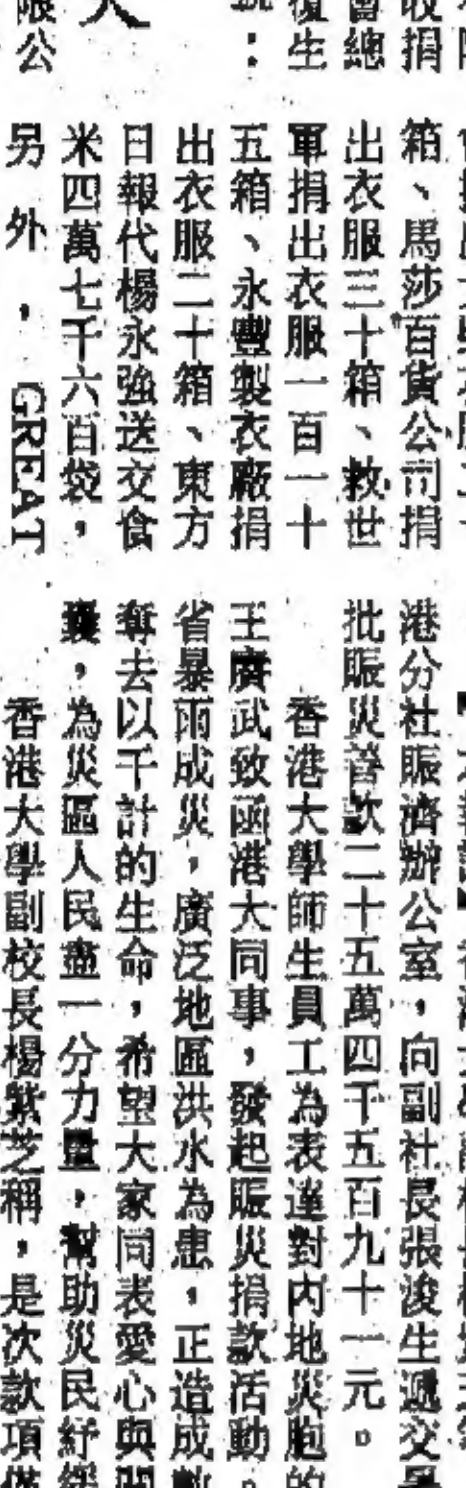 收捐
會總
復生
：
人
限公
箱、馬莎百貨公司捐
出衣服三十箱、救世
軍捐出衣服一百一十
五箱、永豐製衣廠捐
出衣服二十箱、東方
日報代楊永強送交食
米四萬七千六百袋，
另外，GREAT
港分社賑濟辦公室，向副社長張浚生遞交
批賑災善款二十五萬四千五百九十一元。
香港大學師生員工為表達對內地災胞的
王賡武致函港大同事，發起賑災捐款活動。
省暴雨成災，廣泛地區洪水為患，正造成
奪去以千計的生命，希望大家同表愛心與關
，為災區人民盡一分力量，幫助災民紓緩
香港大學副校長楊紫芝稱，是次款項僅